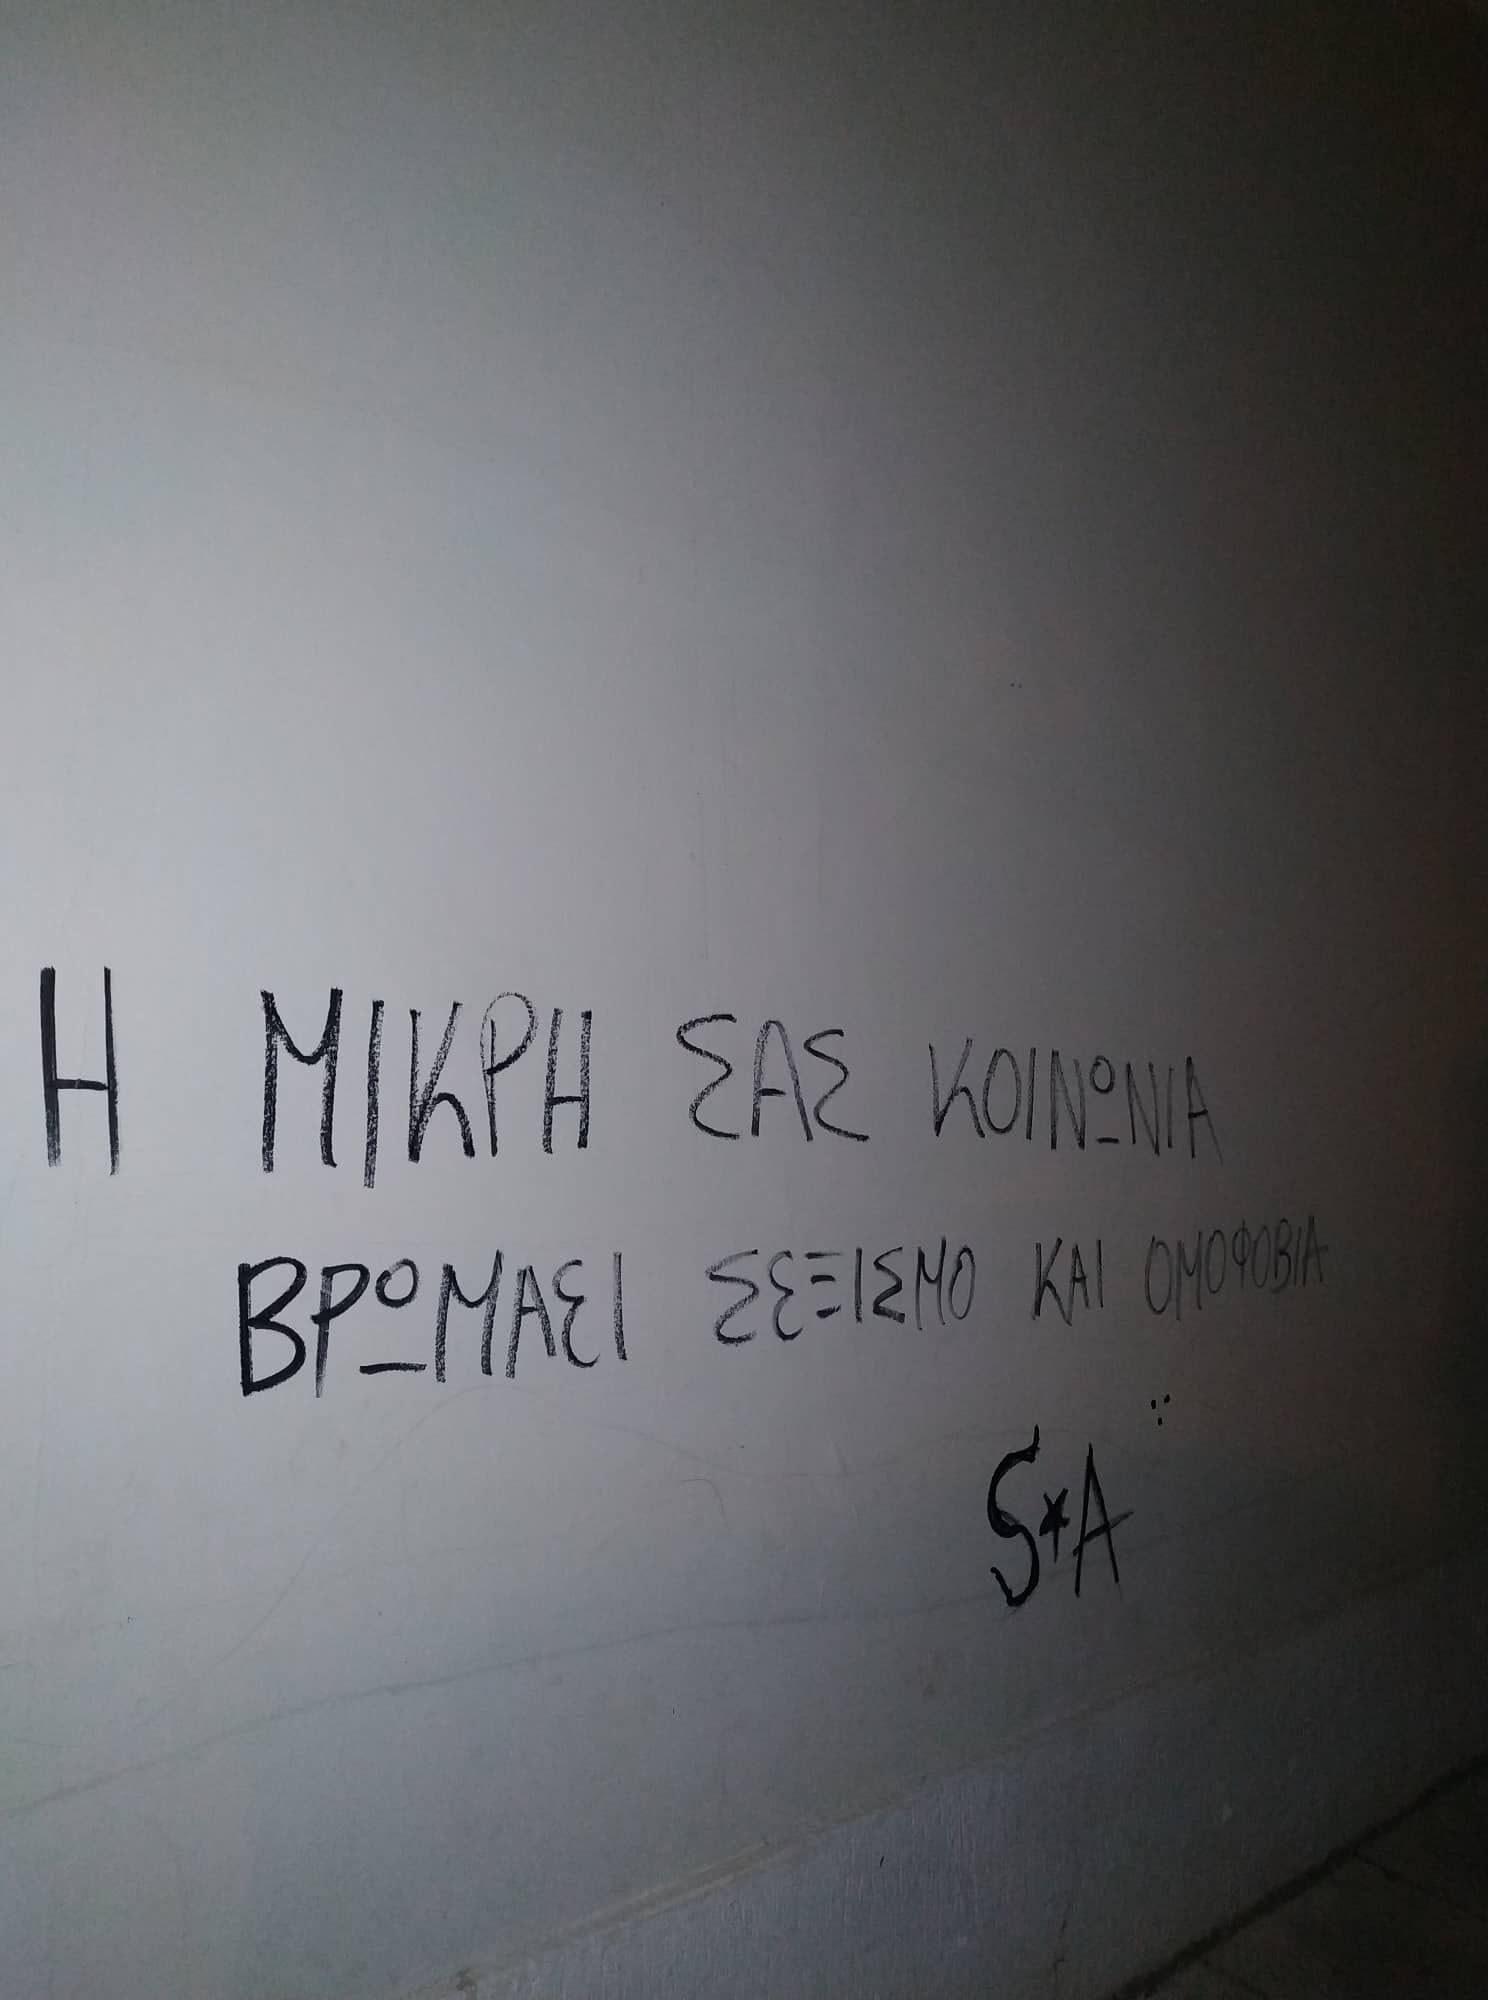 Η ΜΙΚΡΗ ΣΑΣ ΚΟΙΝΩΝΙΑ
ΒΡΩΜΑΕΙ ΣΕΞΙΣΜΟ ΚΑΙ ΟΜΟΦΟΒΙΑ
S★A